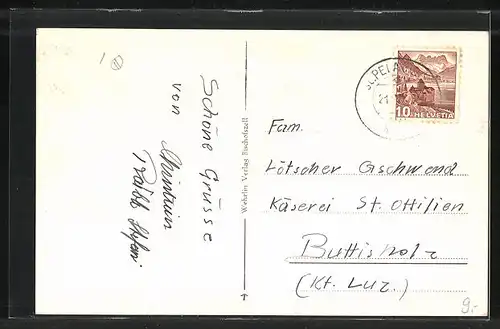 1 11
Schöne Grüsse
von
Wehrlin Verlag Bischofszell
ST. PELA
21.
10 HELVETIA
Fam.
Lötscher Gschwend
Käserei St. Ottilien
Buttisholz
(Kt. Luz.)
9.-